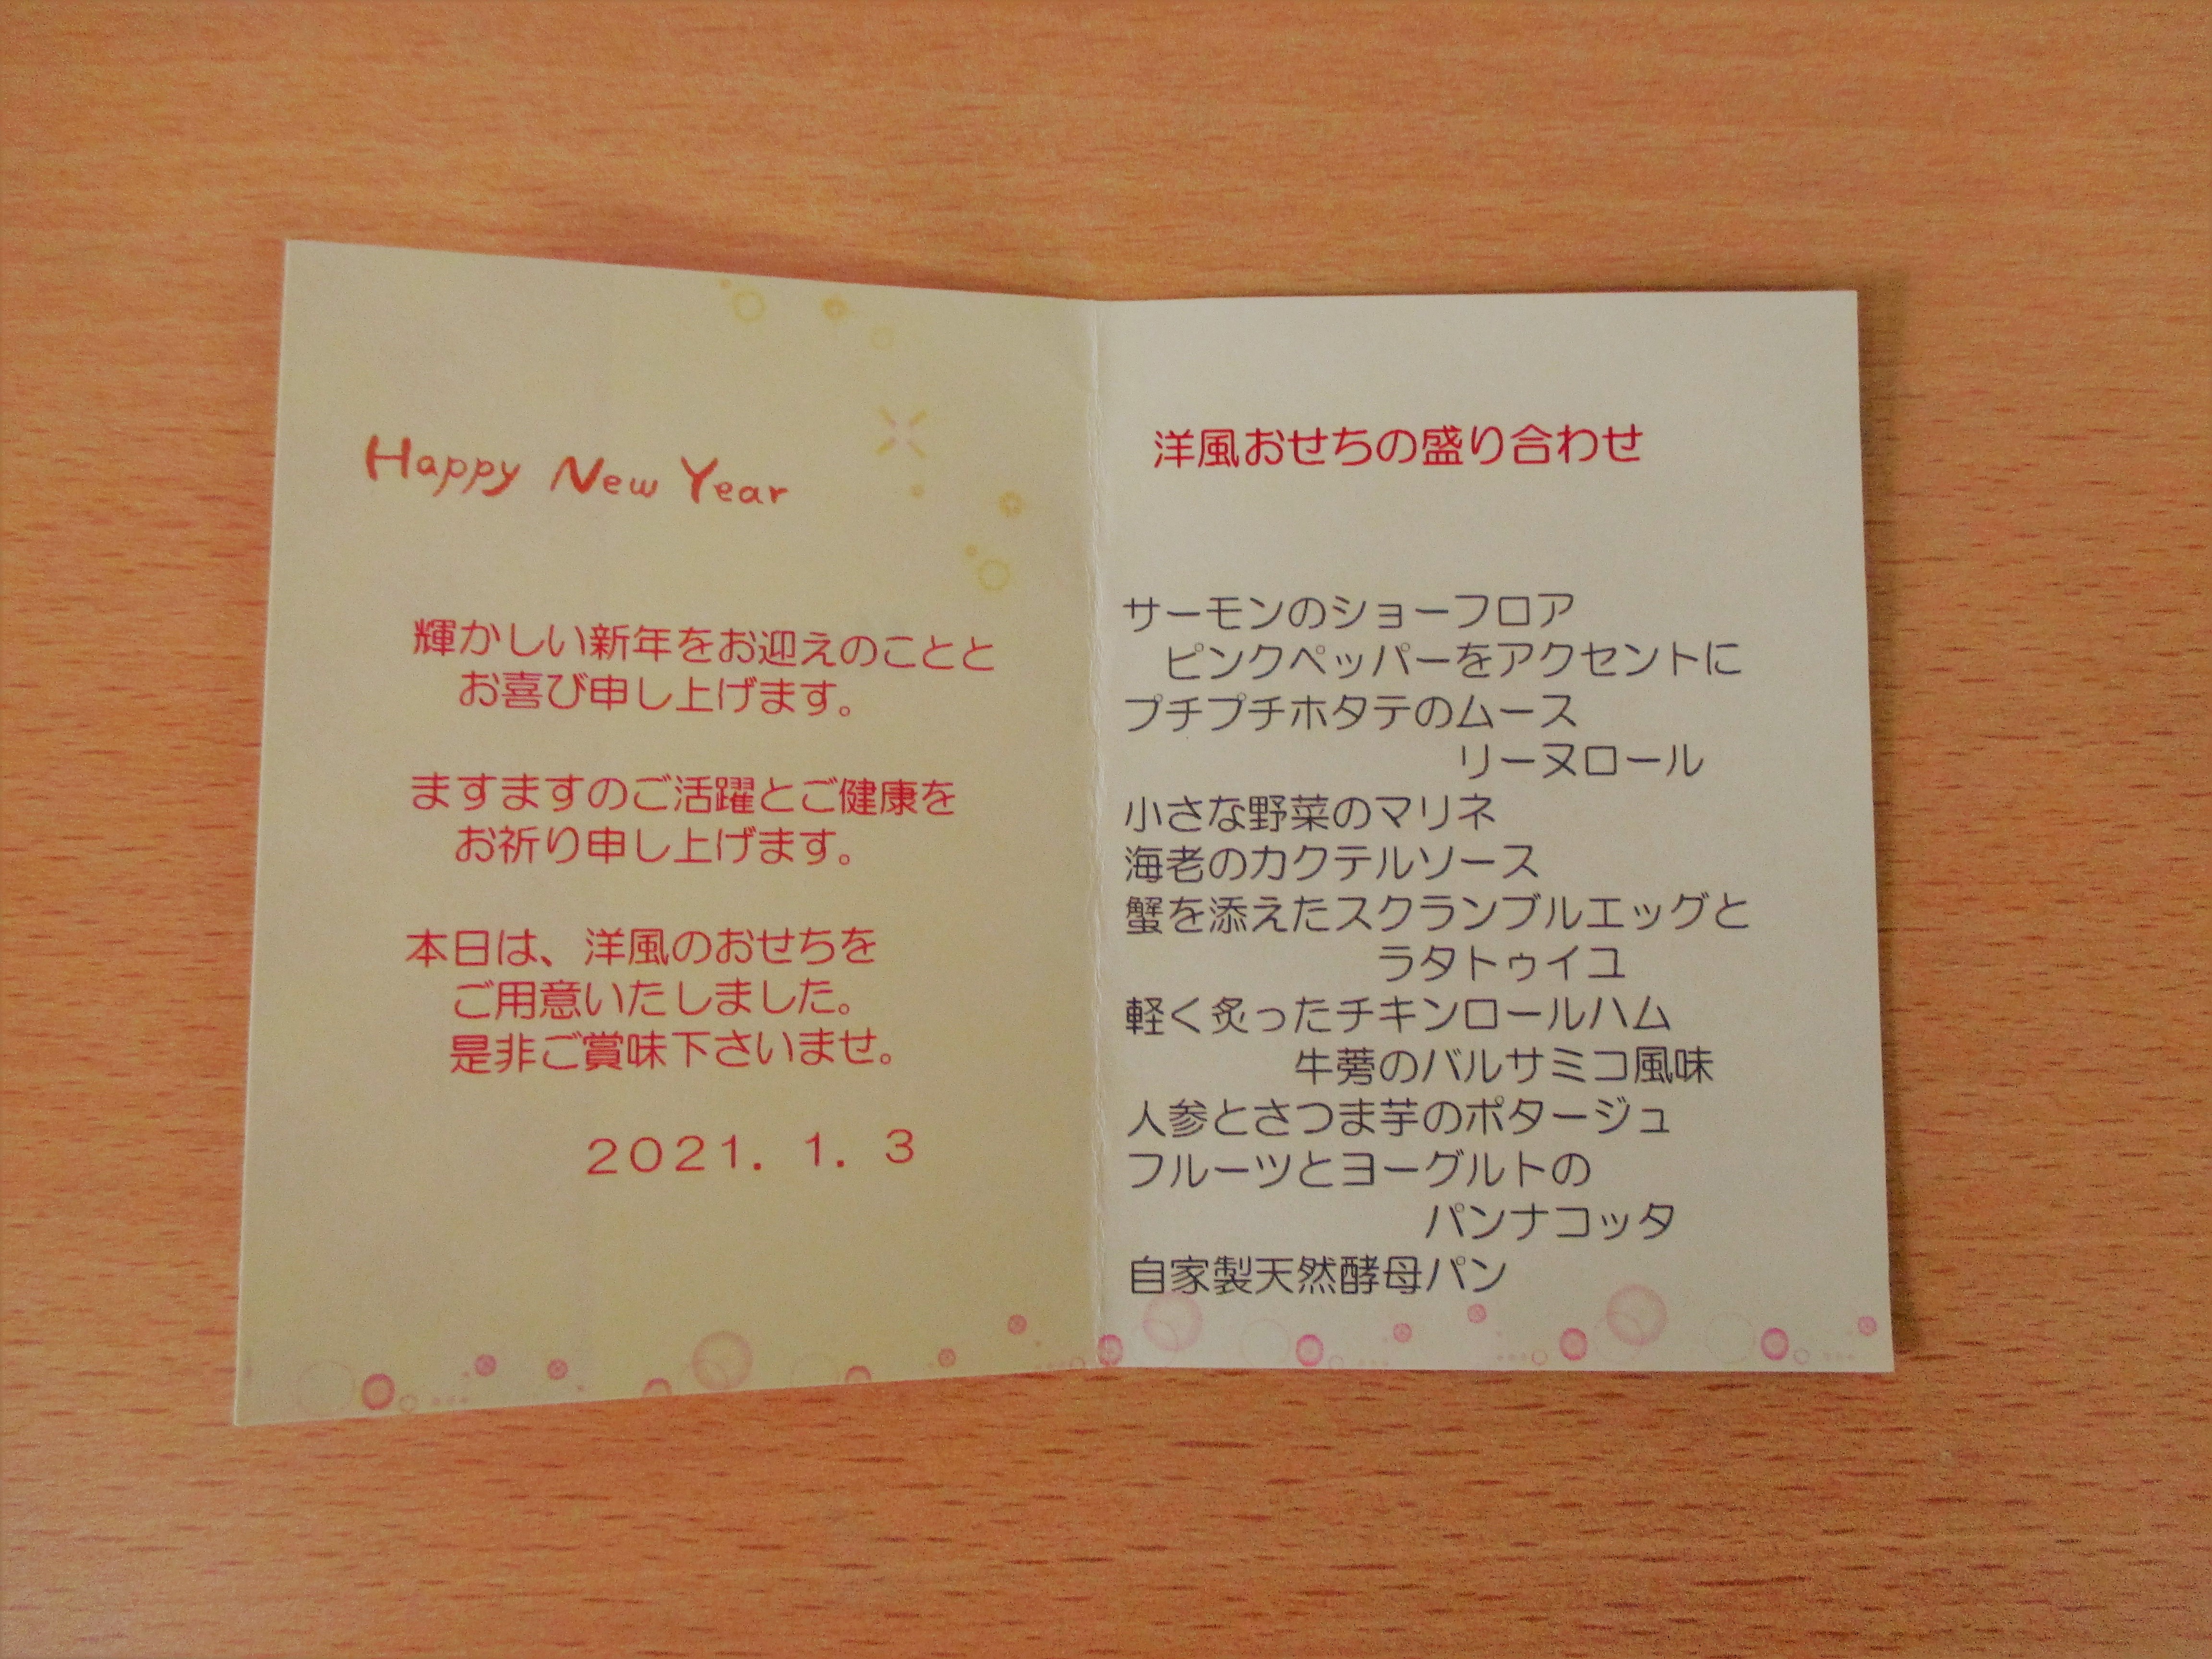 Happy New Year
輝かしい新年をお迎えのことと
お喜び申し上げます。
ますますのご活躍とご健康を
お祈り申し上げます。
本日は、洋風のおせちを
ご用意いたしました。
是非ご賞味下さいませ。
２０２１．１．３
洋風おせちの盛り合わせ
サーモンのショーフロア
ピンクペッパーをアクセントに
プチプチホタテのムース
リーヌロール
小さな野菜のマリネ
海老のカクテルソース
蟹を添えたスクランブルエッグと
ラタトゥイユ
軽く炙ったチキンロールハム
牛蒡のバルサミコ風味
人参とさつま芋のポタージュ
フルーツとヨーグルトの
パンナコッタ
自家製天然酵母パン